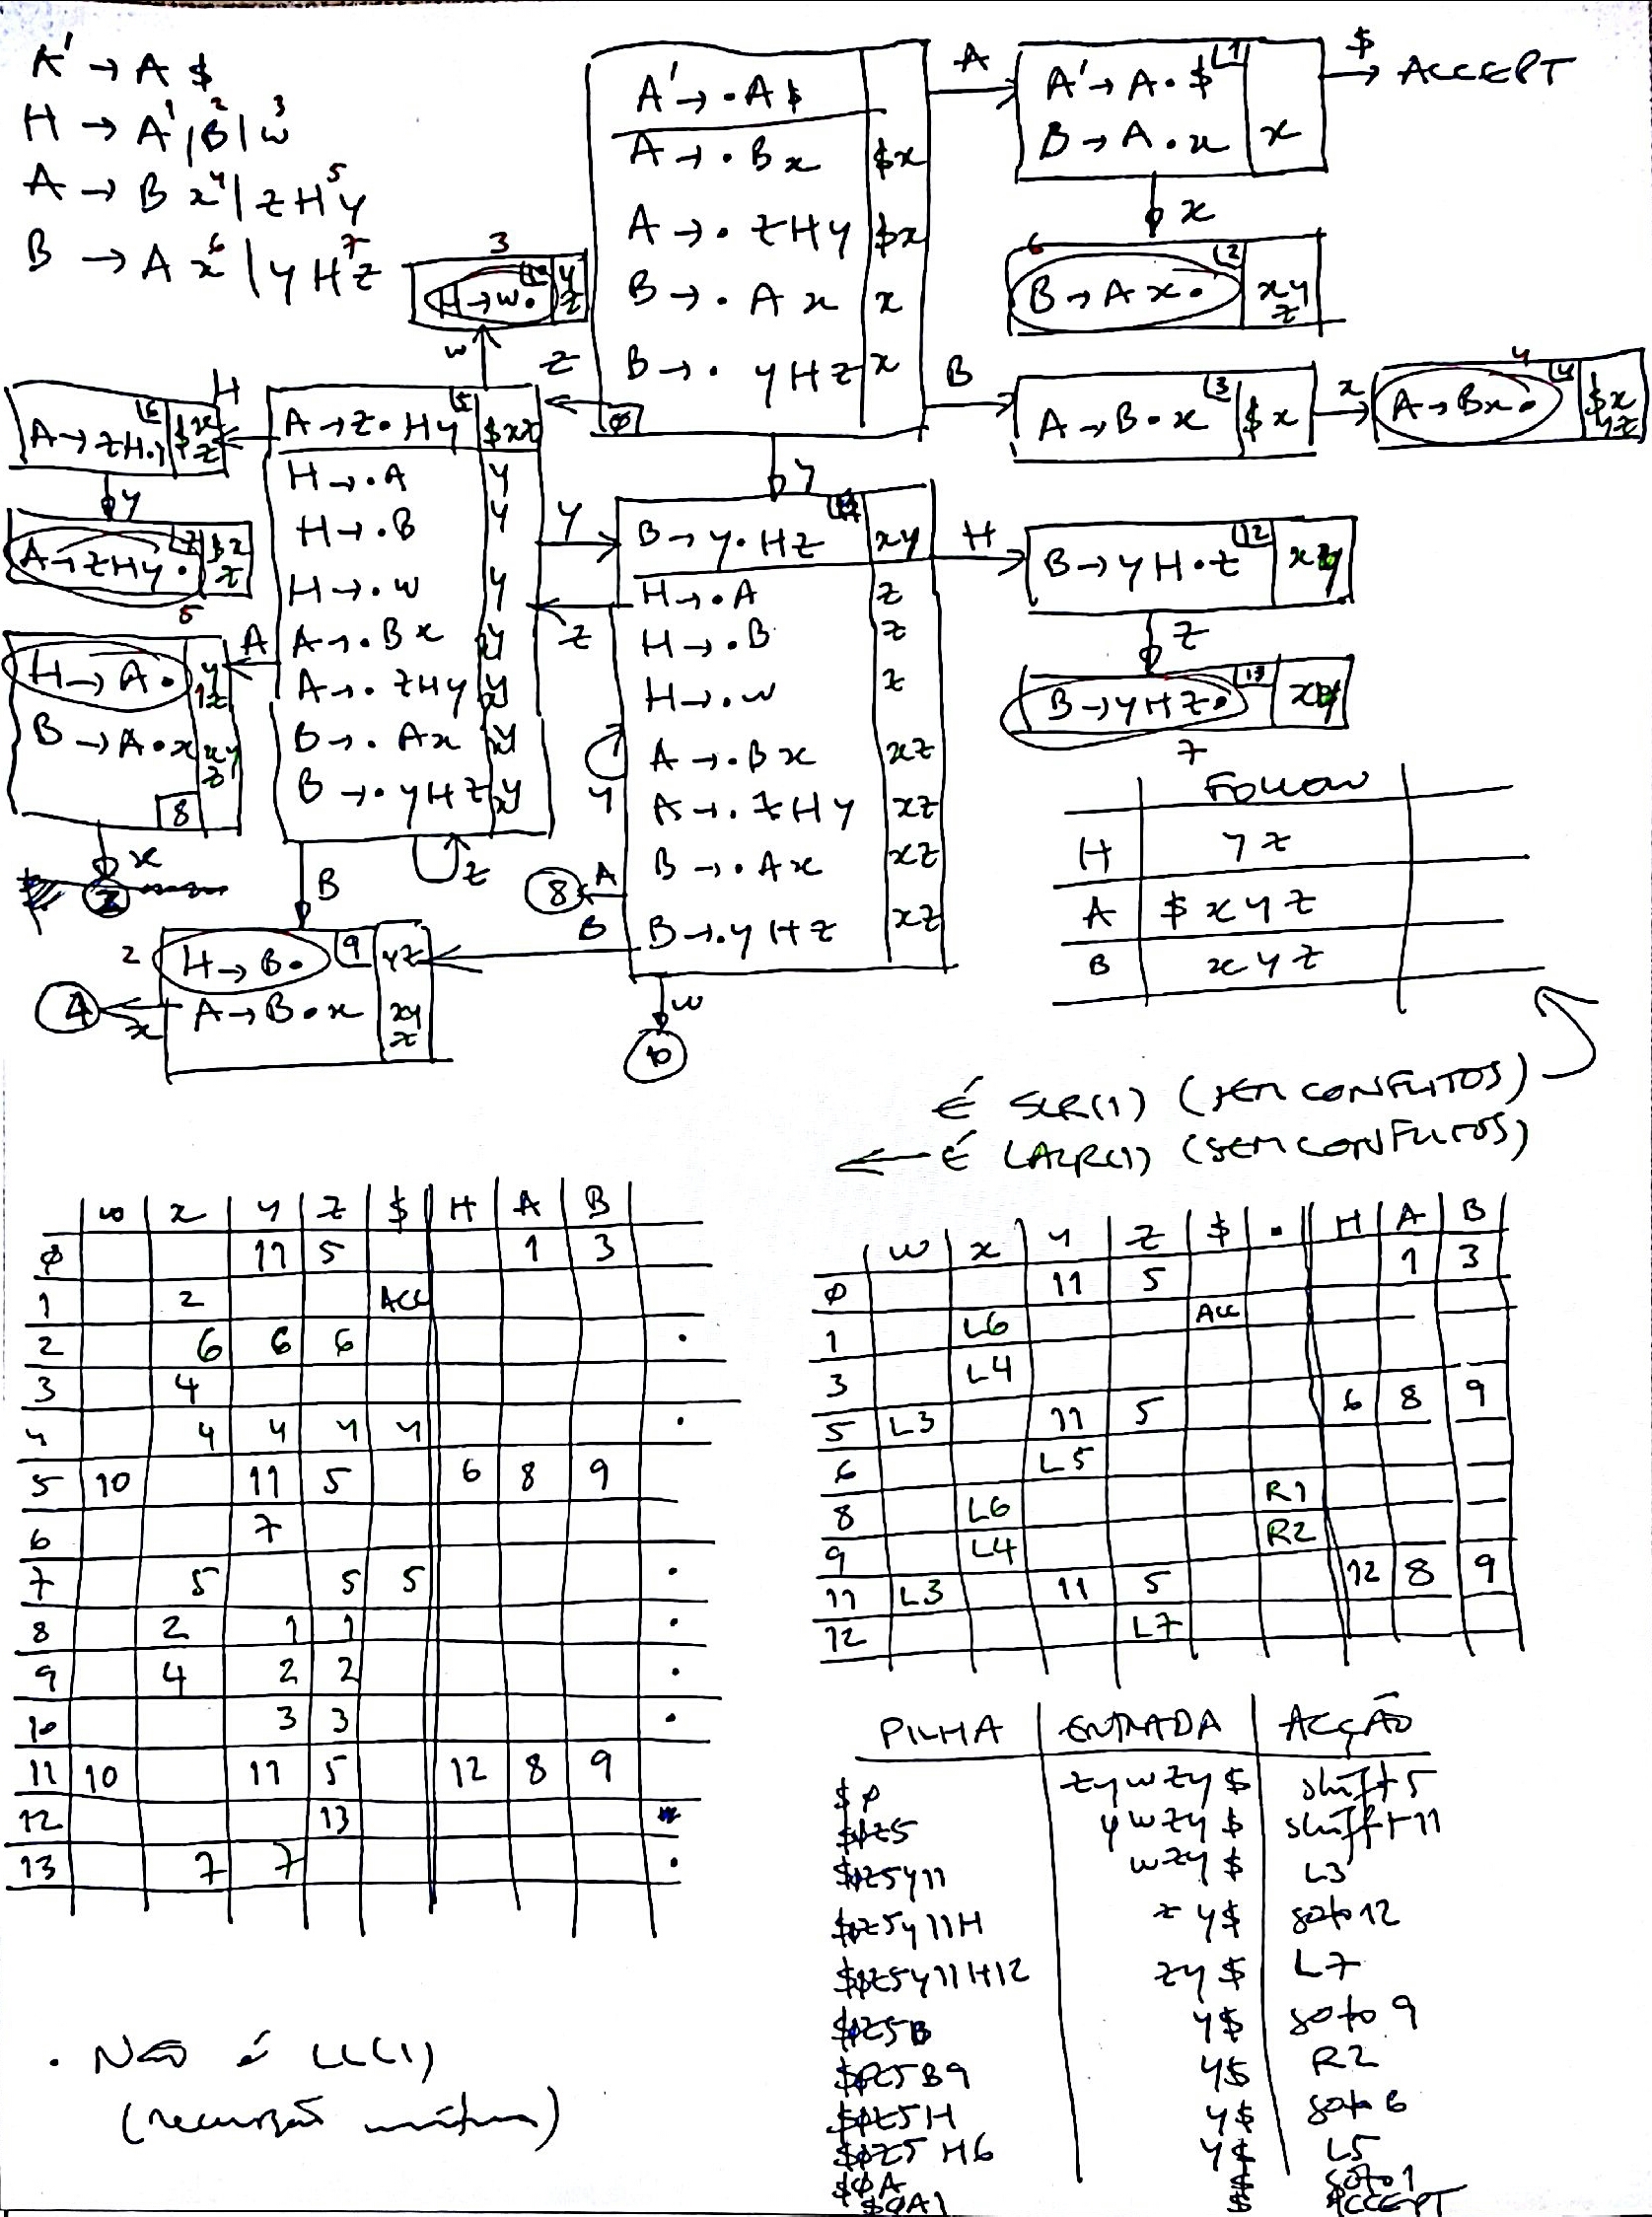 A' → A $
H → A¹ | B² | w³
A → B x⁴ | z H y⁵
B → A x⁶ | y H z⁷
A' → • A $
A → • B x $x
A → • z H y $x
B → • A x x
B → • y H z x
Ø
A
A' → A • $ 1
B → A • x x
$ → ACCEPT
x
6
B → A x • 2 xy
z
B
A → B • x 3 $ x
x
4
A → B x • 4 $x
yz
z
3
H → w • 10 y
z
w
A → z • H y 5 $xz
H → • A y
H → • B y
H → • w y
A → • B x y
A → • z H y y
B → • A x y
B → • y H z y
H
A → z H • y 6 $x
z
y
A → z H y • 7 $x
z
5
A
H → A • y
1z
B → A • x xy
z
8
x
2
B
z
2 H → B • 9 yz
A → B • x xy
z
x
4
y
y
z
B → y • H z 11 xy
H → • A z
H → • B z
H → • w z
A → • B x xz
A → • z H y xz
B → • A x xz
B → • y H z xz
y
A
8
B
w
10
H
B → y H • z 12 xy
z
B → y H z • 13 xy
7
FOLLOW
H y z
A $ x y z
B x y z
É SLR(1) (SEM CONFLITOS)
← É LALR(1) (SEM CONFLITOS)
w x y z $ H A B
Ø 11 5 1 3
1 2 ACC
2 6 6 6 •
3 4
4 4 4 4 4 •
5 10 11 5 6 8 9
6 7
7 5 5 5 •
8 2 1 1 •
9 4 2 2 •
10 3 3 •
11 10 11 5 12 8 9
12 13
13 7 7 •
w x y z $ • H A B
Ø 11 5 1 3
1 L6 ACC
3 L4
5 L3 11 5 6 8 9
6 L5
8 L6 R1
9 L4 R2
11 L3 11 5 12 8 9
12 L7
PILHA ENTRADA ACÇÃO
$Ø zywzy$ shift 5
$Øz5 ywzy$ shift 11
$Øz5y11 wzy$ L3
$Øz5y11H zy$ goto 12
$Øz5y11H12 zy$ L7
$Øz5B y$ goto 9
$Øz5B9 y$ R2
$Øz5H y$ goto 6
$Øz5H6 y$ L5
$ØA $ goto 1
$ØA1 $ ACCEPT
• NÃO é LL(1)
(recursão mútua)